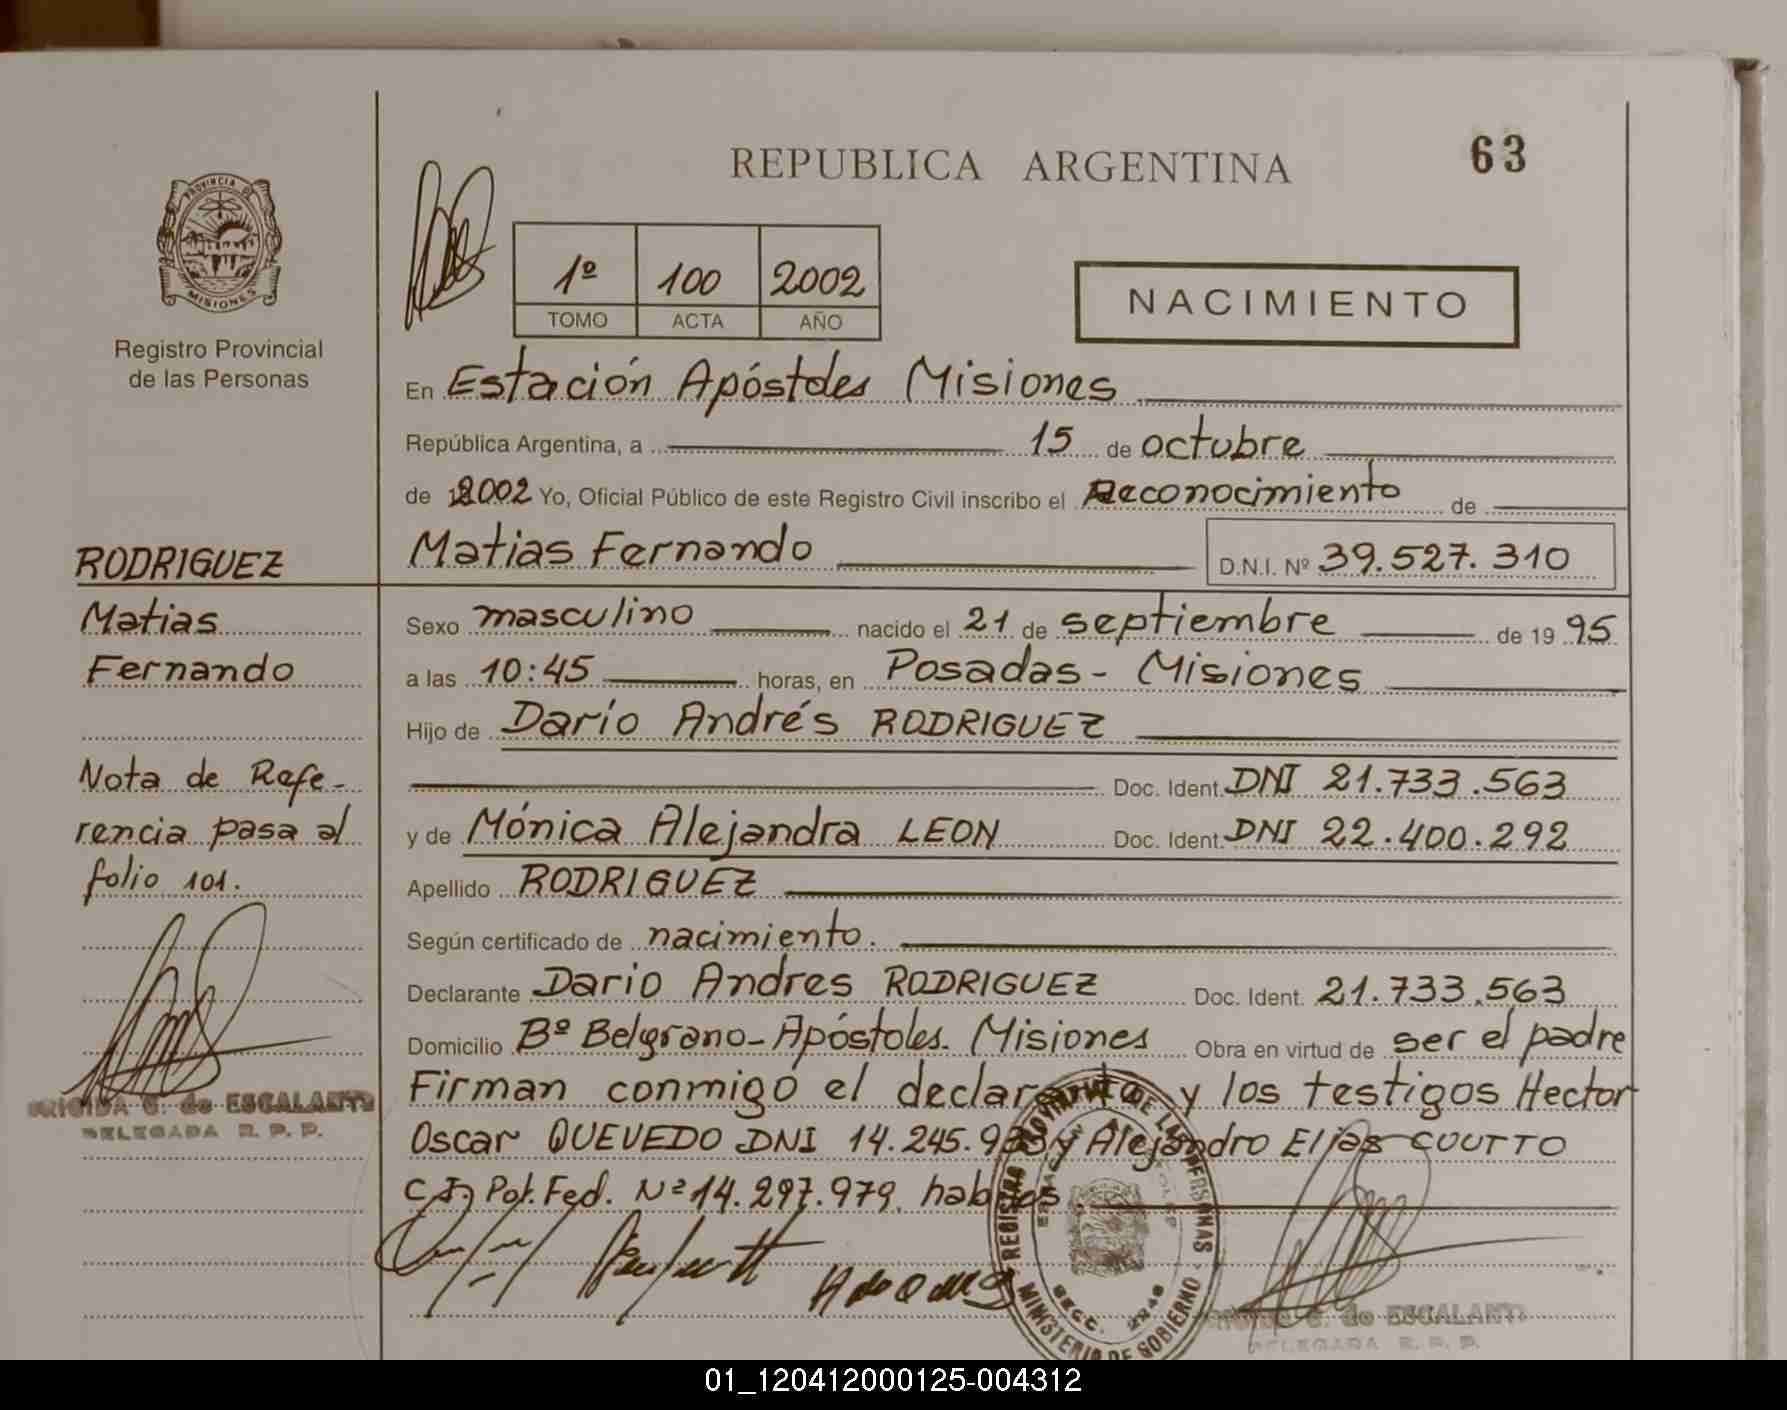 REPUBLICA ARGENTINA
63
PROVINCIA DE
MISIONES
Registro Provincial
de las Personas
1º 100 2002
TOMO ACTA AÑO
NACIMIENTO
En Estación Apóstoles Misiones
República Argentina, a 15 de octubre
de 2002 Yo, Oficial Público de este Registro Civil inscribo el Reconocimiento de
Matias Fernando D.N.I. Nº 39.527.310
Sexo masculino nacido el 21 de septiembre de 19 95
a las 10:45 horas, en Posadas - Misiones
Hijo de Darío Andrés RODRIGUEZ
Doc. Ident. DNI 21.733.563
y de Mónica Alejandra LEON Doc. Ident. DNI 22.400.292
Apellido RODRIGUEZ
Según certificado de nacimiento.
Declarante Dario Andres RODRIGUEZ Doc. Ident. 21.733.563
Domicilio Bº Belgrano - Apóstoles. Misiones Obra en virtud de ser el padre
Firman conmigo el declarante y los testigos Hector
Oscar QUEVEDO DNI 14.245. y Alejandro Elias COUTTO
C.I. Pol. Fed. Nº 14.297.979, habiles
RODRIGUEZ
Matias
Fernando
Nota de Refe-
rencia pasa al
folio 101.
BRIGIDA G. de ESCALANTE
DELEGADA R. P. P.
REGISTRO PROVINCIAL DE LAS PERSONAS
MINISTERIO DE GOBIERNO
SECC.
G. de ESCALANTE
DELEGADA R. P. P.
01_120412000125-004312